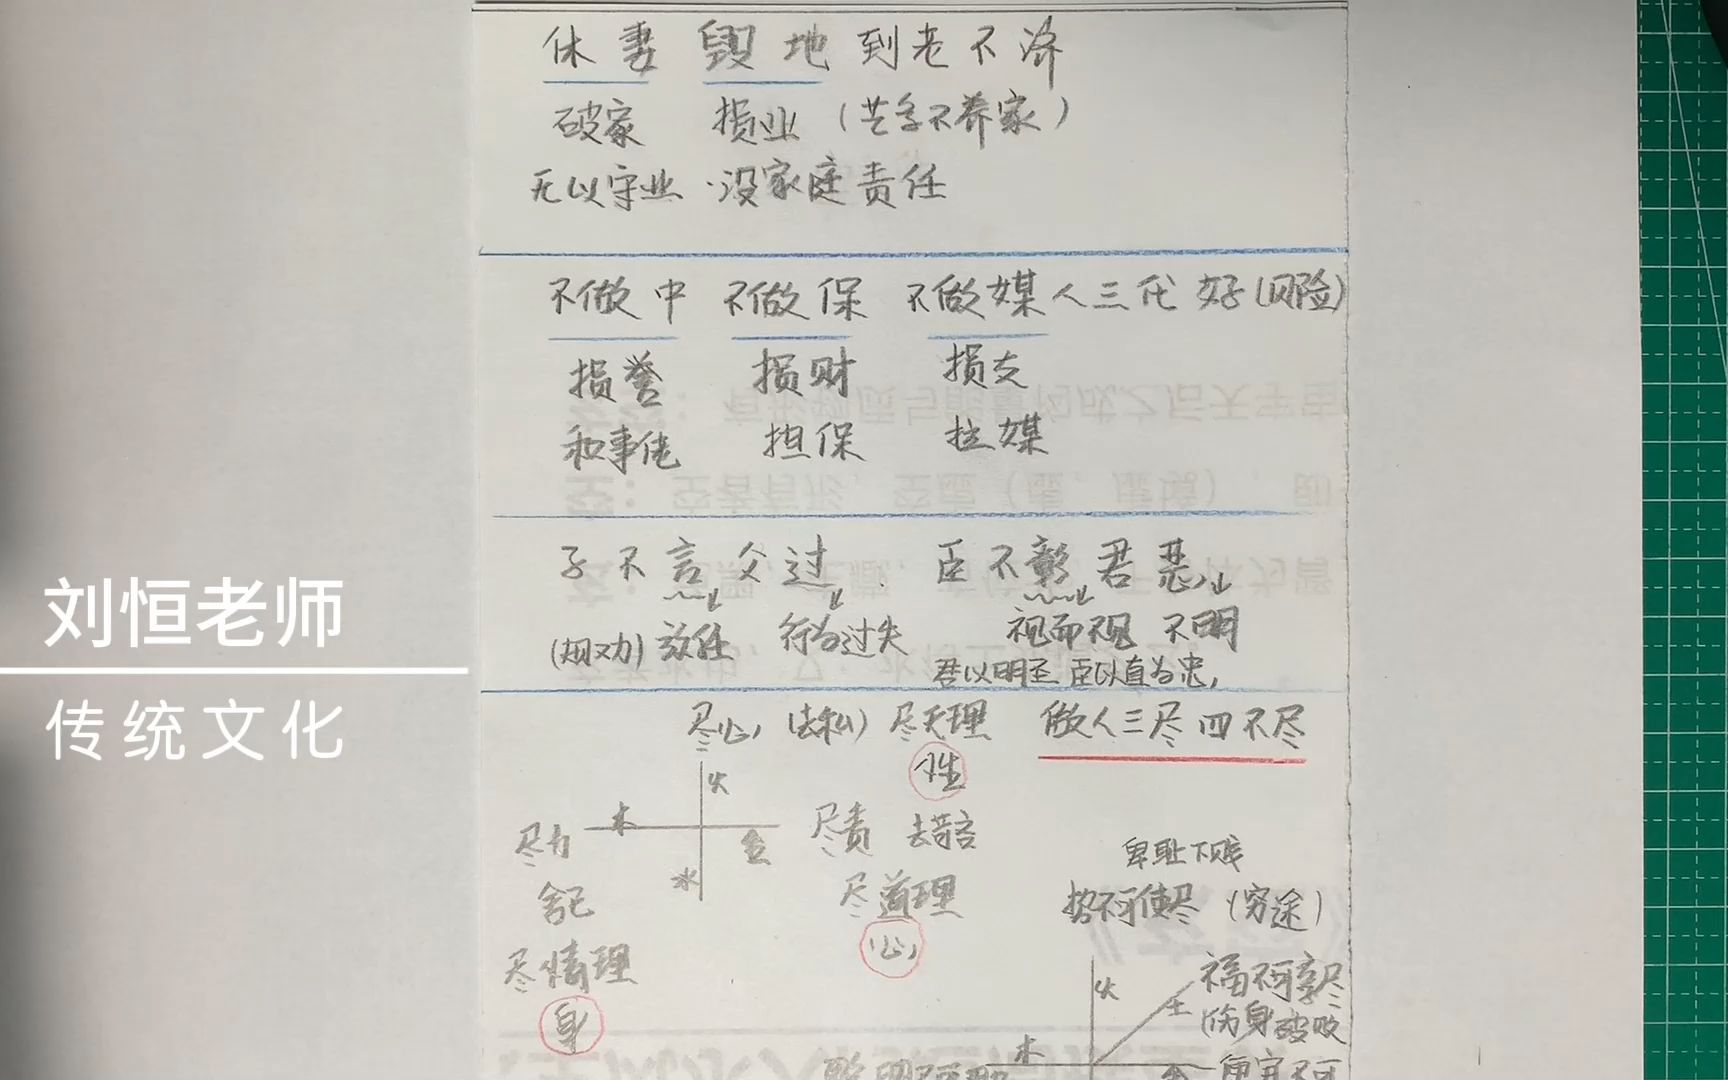 休妻 毁地 到老不济
破家 损业 (芒字不养家)
无以守业 · 没家庭责任
不做中 不做保 不做媒人三代好(风险)
损誉 损财 损友
和事佬 担保 拉媒
子不言父过 . 臣不彰君恶
(规劝) 放任 行为过失 视而不见 不明
君以明圣 臣以直为忠,
刘恒老师
传统文化
尽心 (去私) 尽天理 做人三尽四不尽
性
火
尽力 木 金 尽责 去苟言
水
卑耻下贱
舍己 尽道理 势不可使尽 (穷途)
心
尽情理
身
火 土 福不可享尽
(伤身破败
木 金 便宜不可